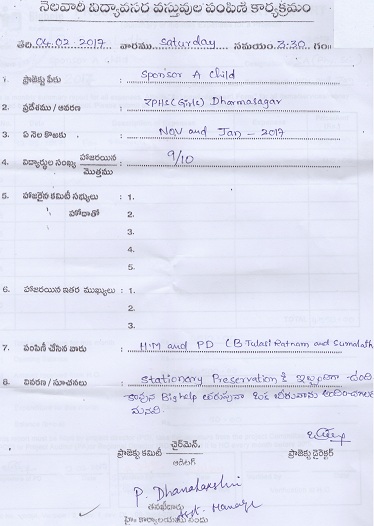 నెలవారీ విద్యావసర వస్తువుల పంపిణీ కార్యక్రమం
తేది. 04.02.2017 వారము. Saturday సమయం. 3:30 గం॥
1. ప్రాజెక్టు పేరు : Sponsor A Child
2. ప్రదేశము / ఆవరణ : ZPHS (Girls) Dharmasagar
3. ఏ నెల కొరకు : NOV and Jan - 2017
4. విద్యార్థుల సంఖ్య హాజరయిన / మొత్తము : 9/10
5. హాజరైన కమిటీ సభ్యులు : 1.
హోదాతో 2.
3.
4.
5.
6. హాజరయిన ఇతర ముఖ్యులు : 1.
2.
3.
7. పంపిణీ చేసిన వారు : H.M and PD (B Tulasi Ratnam and Sumalath
8. వివరణ / సూచనలు : Stationary Preservation కి ఇబ్బందిగా ఉంది
కావున Bighelp తరుపున ఒక బీరువాను
మనవి.
ప్రాజెక్టు కమిటీ చైర్మెన్. / ఆడిటర్
ప్రాజెక్టు డైరెక్టర్
P. Dhanalakshmi
తనిఖీదారు
Asst. Manager